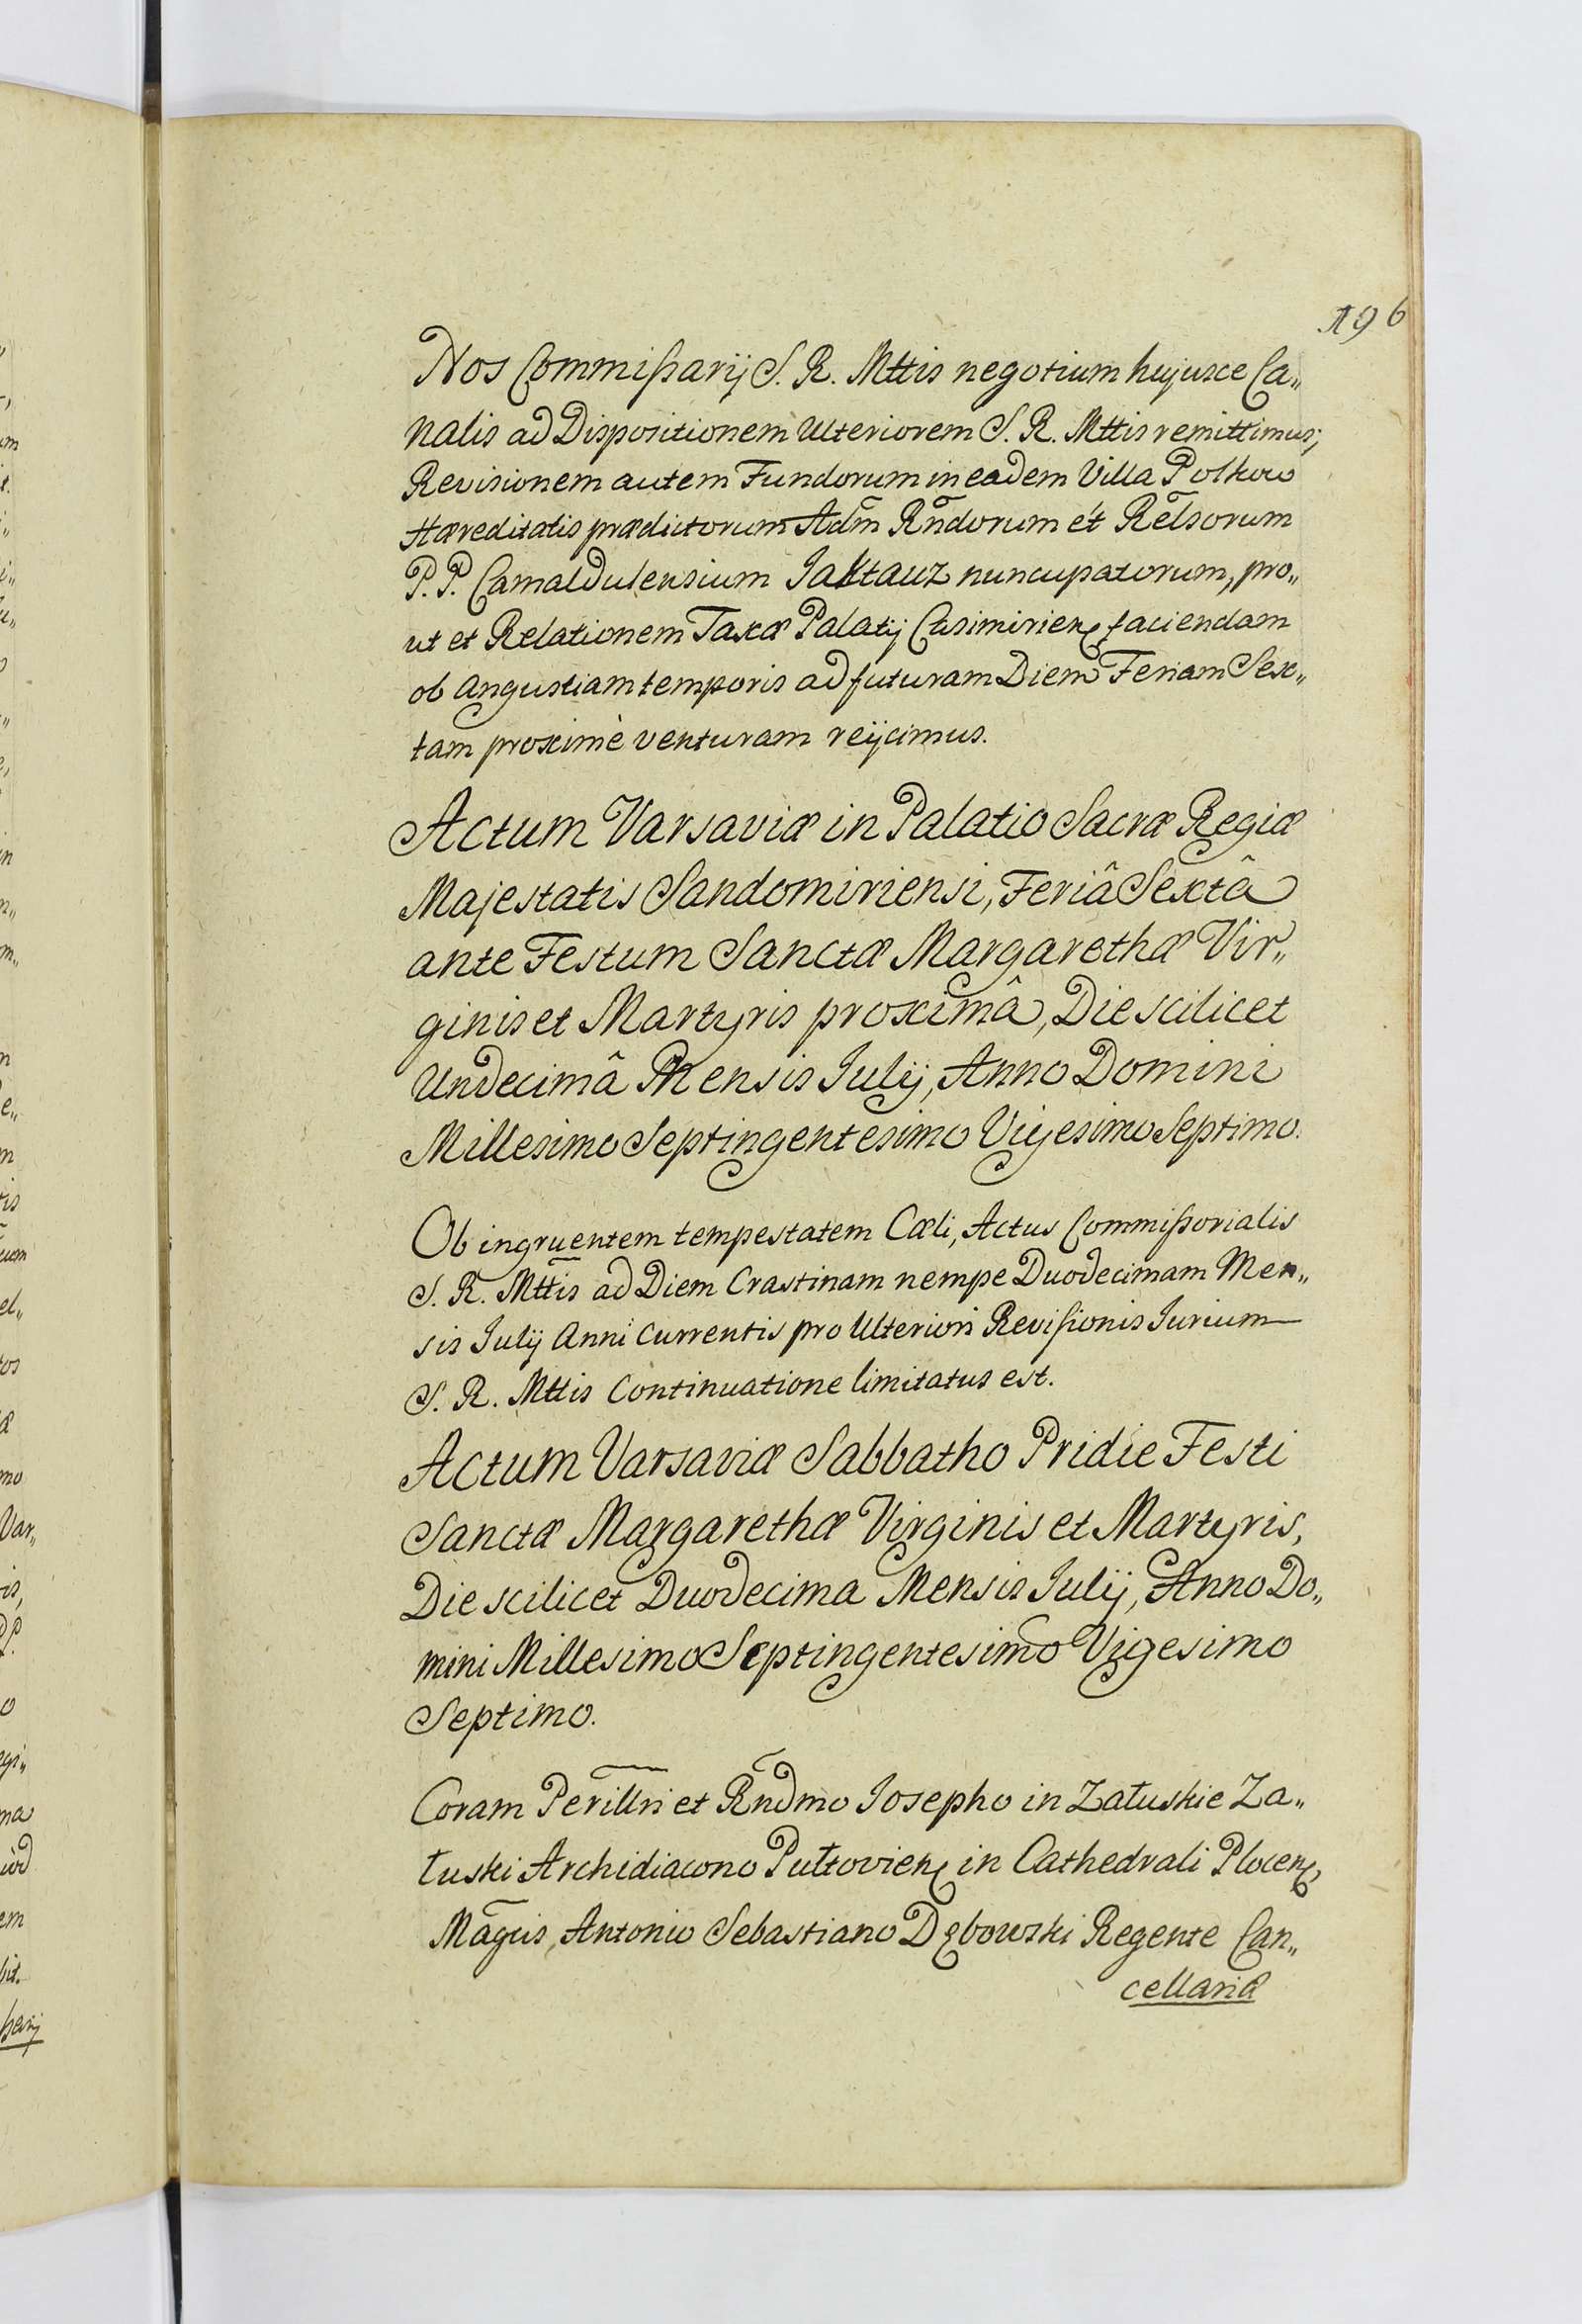 196
Nos Commißarij S. R. Mttis negotium hujusce Ca„
nalis ad Dispositionem Ulteriorem S. R. Mttis remittimus;
Revisionem autem Fundorum in eadem Villa Polkow
Hæreditatis prædictorum Adm̄ Rñdorum et Rel̄sorum
P. P. Camaldulensium Jaktauz nuncupatorum, pro„
ut et Relationem Taxæ Palatij Casimirien̄ faciendam
ob angustiam temporis ad futuram Diem Feriam Sex„
tam proximè venturam reijcimus.
Actum Varsaviæ in Palatio Sacræ Regiæ
Majestatis Sandomiriensi, Feriâ Sextâ
ante Festum Sanctæ Margarethæ Vir„
ginis et Martyris proximâ, Die scilicet
Undecimâ Mensis Julij, Anno Domini
Millesimo Septingentesimo Vigesimo Septimo.
Ob ingruentem tempestatem Cæli, Actus Commißorialis
S. R. Mttis ad Diem Crastinam nempe Duodecimam Men„
sis Julij Anni Currentis pro Ulteriori Revisionis Jurium
S. R. Mttis Continuatione limitatus est.
Actum Varsaviæ Sabbatho Pridie Festi
Sanctæ Margarethæ Virginis et Martyris,
Die scilicet Duodecima Mensis Julij, Anno Do„
mini Millesimo Septingentesimo Vigesimo
Septimo.
Coram Perillri et Rñdmo Josepho in Załuskie Za„
łuski Archidiacono Pułtovien̄ in Cathedrali Plocen̄,
Mag̃cis, Antonio Sebastiano Dębowski Regente Can„
cellariæ